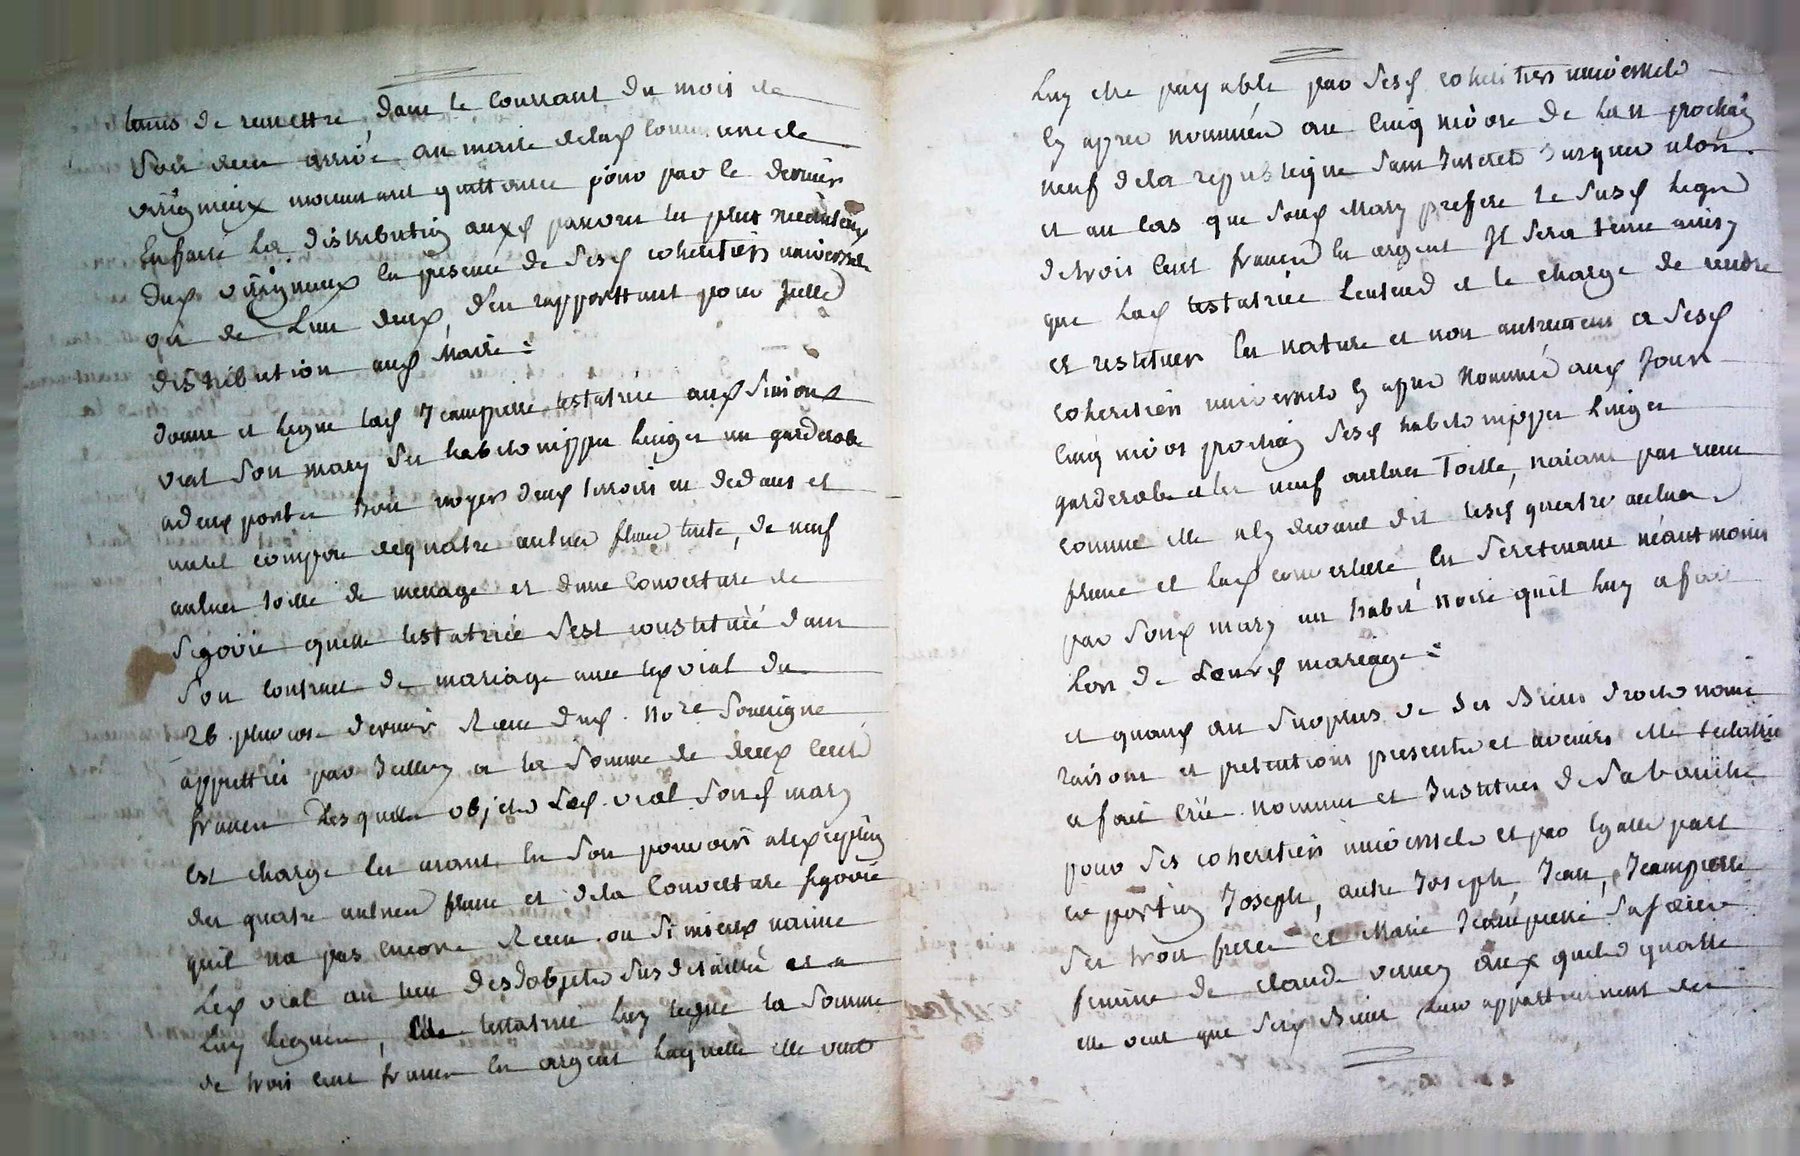 tenus de remettre dans le courrant du mois de
son deces arrivé au maire delad commune de
virigneux moienant quittance pour par le dernier
En faire la distribution auxd pauvres les plus necessiteux
dud virigneux en presence de sesd coheritiers universels
ou de l'un deux, d'en rapporttant pour Icelle
distribution aud Maire =
donne et legue lad Jeampierre testatrice aud Simon
vial son mary ses habits nippes linges un garderobe
a deux portes bois noyer deux tirroirs en dedans et
compose de quatre aulnes flane verte, de neuf
aulnes toille de menage et d'une Couverture de
Segovie quelle testatrice s'est constituée dans
son contract de mariage avec led vial du
26 pluviose dernier Recu dud. Nore. soussigne
appretties par Icelluy a la somme de deux Cent
francs Lesquels objets Led. vial sond mary
est charge les ayant en son pouvoir a l'exception
des quatre aulnes flane et de la Couverture segovie
qu'il na pas encore Recu. ou si mieux n'aime
Led vial au lieu desd objets sus detaillé et a
luy legués, elle testatrice luy legue la somme
de trois cent francs en argent laquelle elle veut
Luy etre payable par sesd coheritiers universels
Cy apres nommés au Cinq nivose de Lan prochain
neuf de la republique sans Interets jusques alors
et au cas que sond Mary prefere le susd legue
de trois Cent francs en argent Il sera tenu ainsy
que Lad testatrice Lentend et le charge de rendre
et restituer en nature et non autrement a sesd
coheritiers universels Cy apres Nommés aud Jour
Cinq nivos prochain sesd habits nippes linges
garderobe et les neuf aulnes Toille, naiant pas recu
comme elle a Cy devant dit lesd quatre aulnes
flane et lad couverture, en se retenant néantmoins
par sond mary un habit noire qu'il luy a fait
Lors de Leurd mariage =
et quand au surplus de ses Biens droits noms
raisons et pretentions presents et avenirs elle testatrice
a fait crée nommer et Instituer de sa bouche
pour ses coheritiers universels et par Egalle part
et portion Joseph, autre Joseph, Jean, Jeampierre
ses trois freres et Marie Jeampierre sa soeur
femme de claude verney auxquels quatre
elle veut que sesd Biens leur appattiennent des